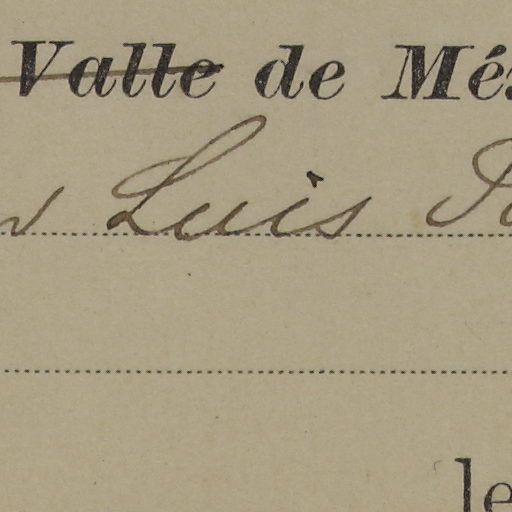 Valle de Mé
Luis
le